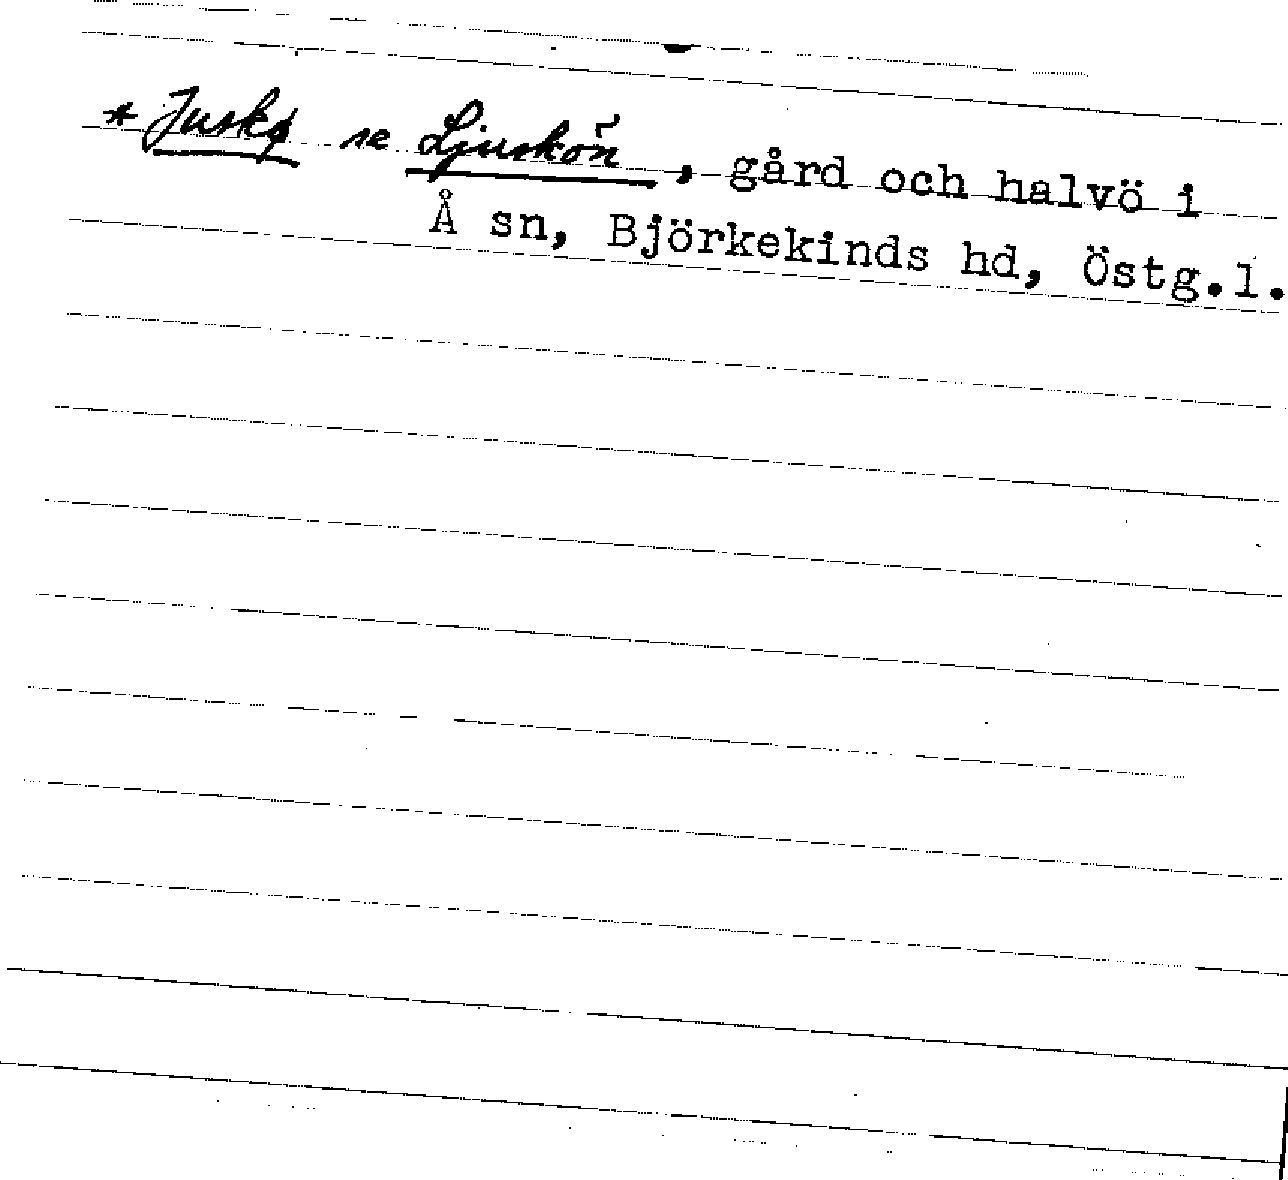 * Juskø se Ljuskön, gård och halvö i
Å sn, Björkekinds hd, Östg.l.